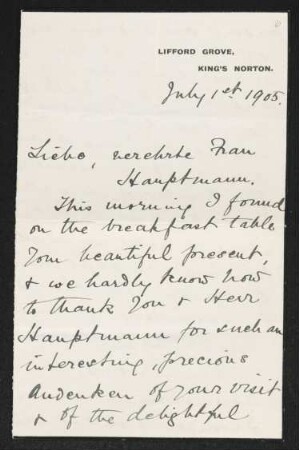 LIFFORD GROVE,
KING'S NORTON.
July 1st 1905.
Liebe, verehrte Frau
Hauptmann.
This morning I found
on the breakfast table
Your beautiful present,
& we hardly know how
to thank You & Herr
Hauptmann for such an
interesting, precious
Andenken of Your visit
& of the delightful